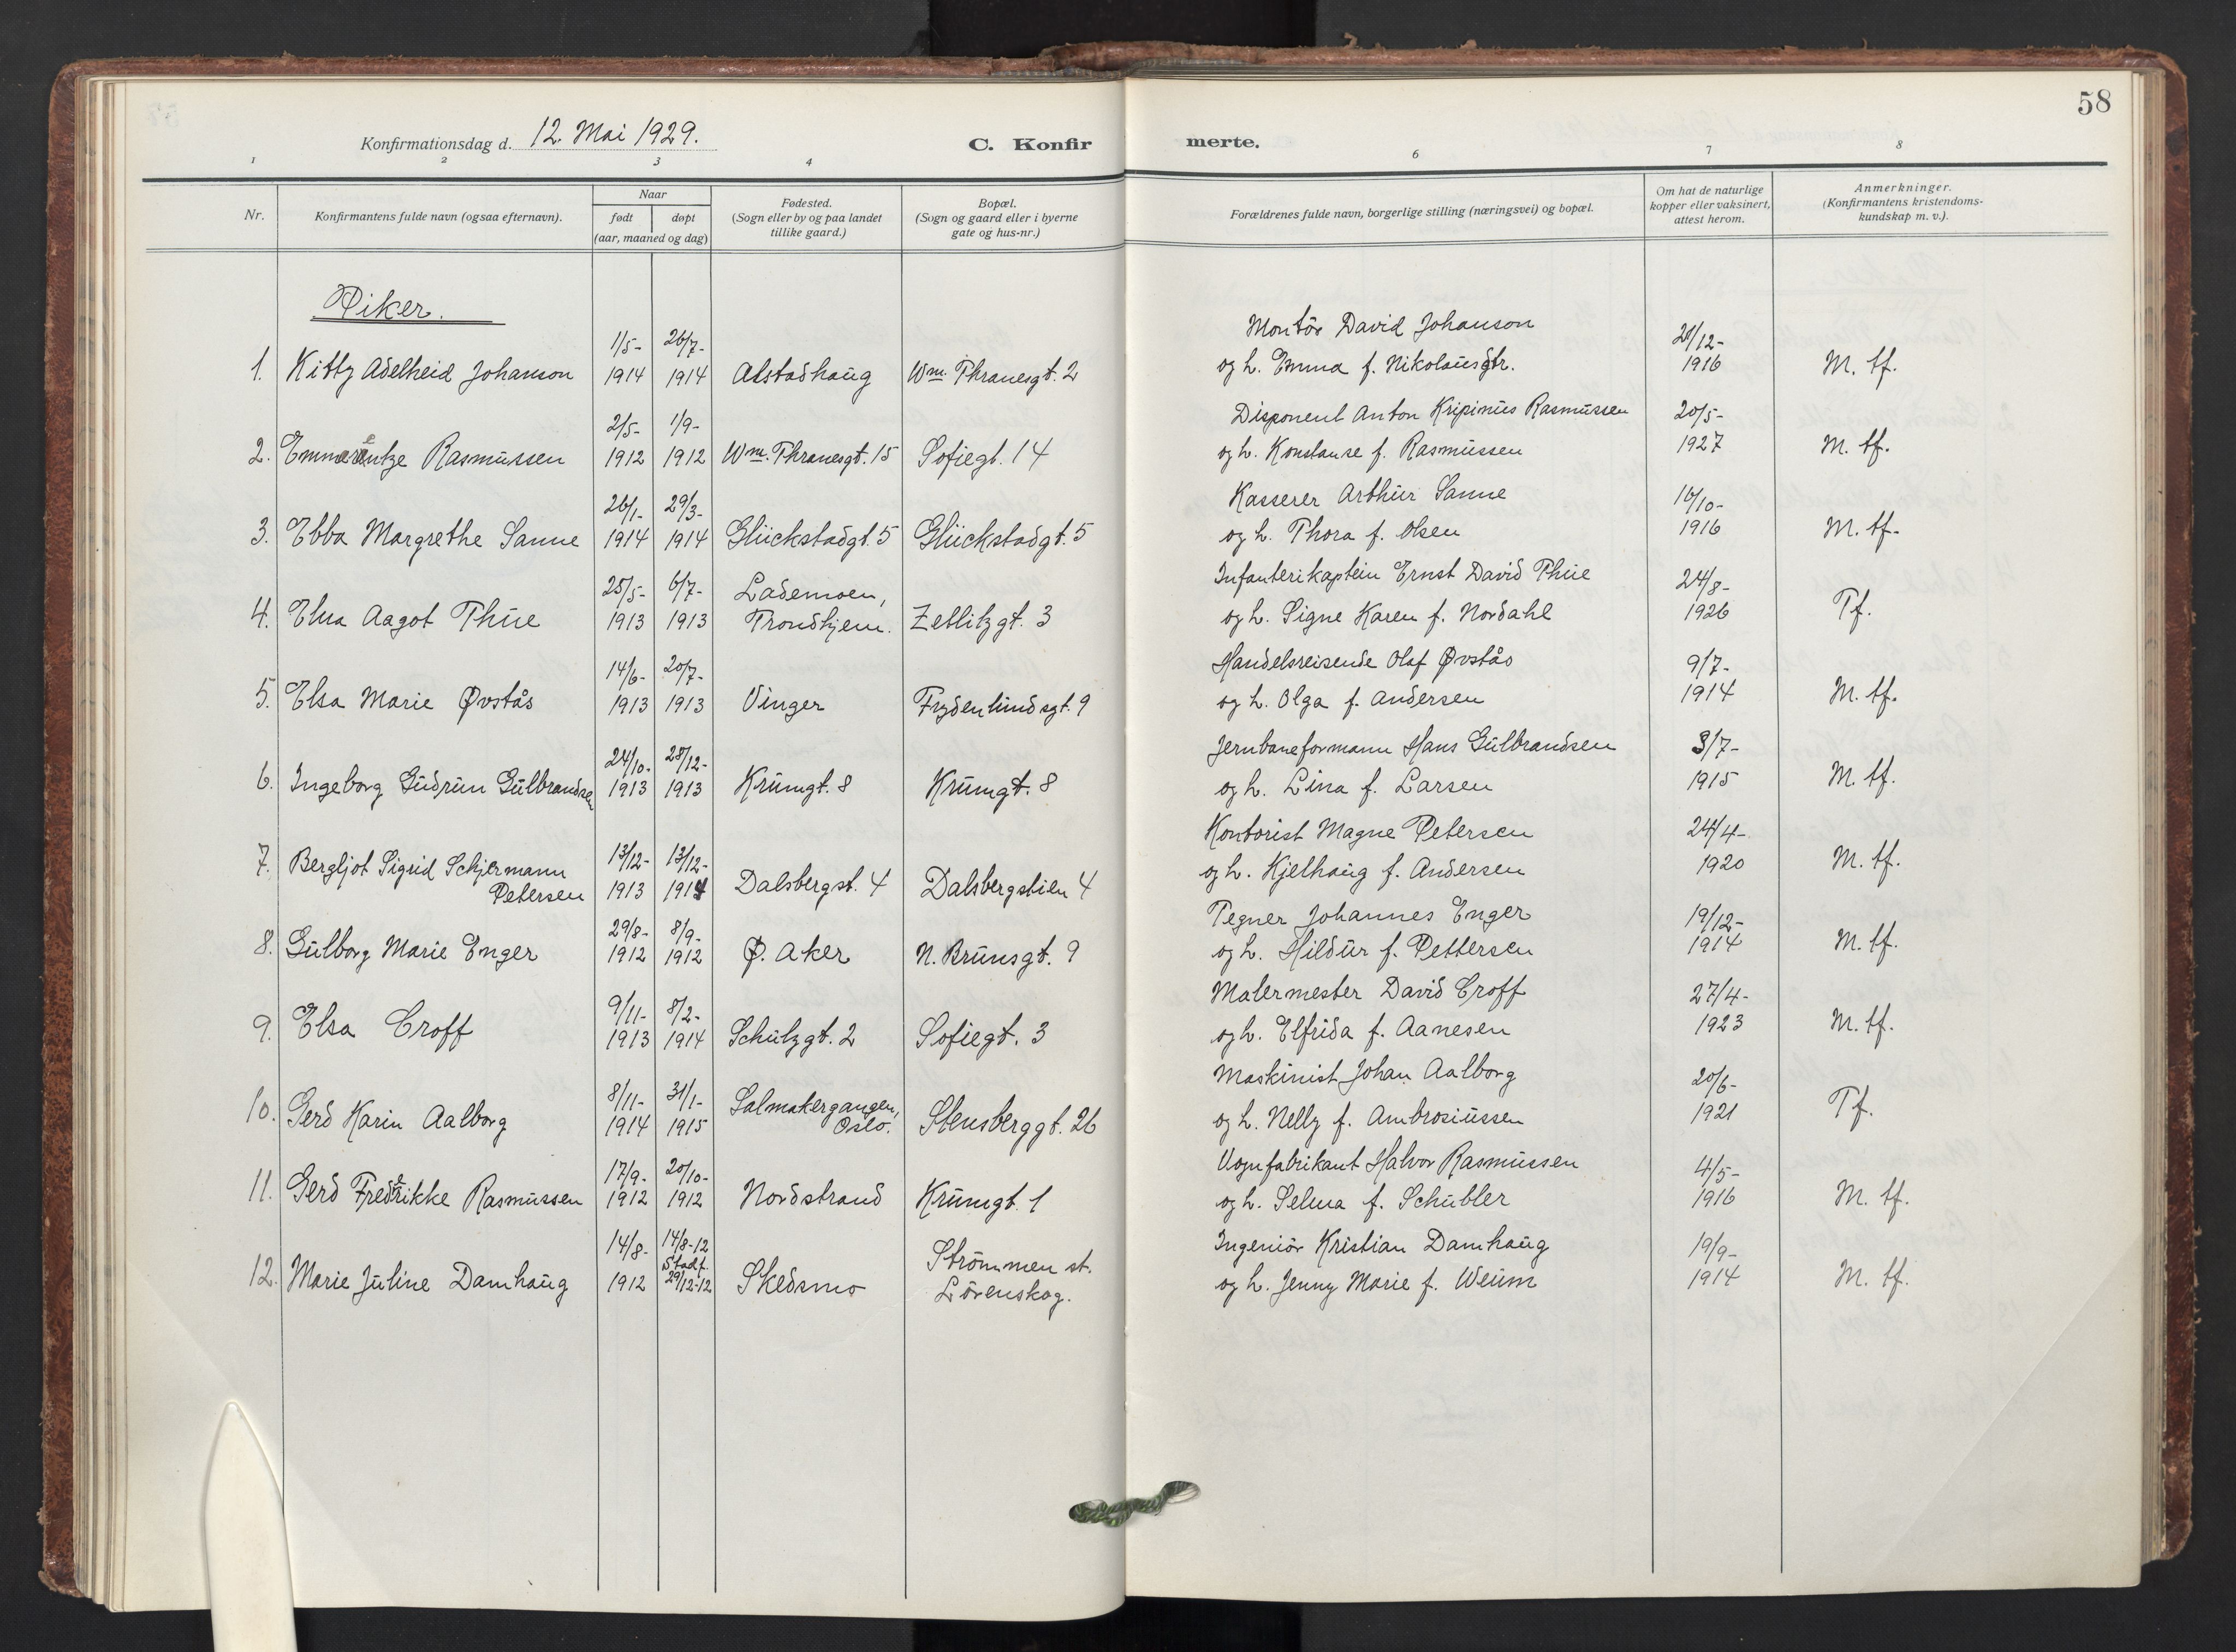 58
Konfirmationsdag d. 12. Mai 1929.
C. Konfirmerte.
1 2 3 4 6 7 8
Nr.
Konfirmantens fulde navn (ogsaa efternavn).
Naar
født døpt
(aar, maaned og dag)
Fødested.
(Sogn eller by og paa landet
tillike gaard.)
Bopæl.
(Sogn og gaard eller i byerne
gate og hus-nr.)
Forældrenes fulde navn, borgerlige stilling (næringsvei) og bopæl.
Om hat de naturlige
kopper eller vaksinert,
attest herom.
Anmerkninger.
(Konfirmantens kristendoms-
kundskap m. v.).
Piker.
1/5- 26/7- Montör David Johanson 21/12-
1. Kitty Adelheid Johanson 1914 1914 Alstadhaug Wm. Thranesgt. 2 og h. Emma f. Nikolausdtr. 1916 M. tf.
2/5- 1/9- Disponent Anton Kripinus Rasmussen 20/5-
2. Emmerentze Rasmussen 1912 1912 Wm. Thranesgt. 15 Sofiegt. 14 og h. Konstanse f. Rasmussen 1927 M. tf.
26/1- 29/3- Kasserer Arthur Sanne 16/10-
3. Ebba Margrethe Sanne 1914 1914 Glückstadgt. 5 Glückstadgt. 5 og h. Thora f. Olsen 1916 M. tf.
25/5- 6/7- Lademoen, Infanterikaptein Ernst David Thue 24/8-
4. Elsa Aagot Thue 1913 1913 Trondhjem. Zetlitzgt. 3 og h. Signe Karen f. Nordahl 1926 Tf.
14/6- 20/7- Handelsreisende Olaf Øvstås 9/7-
5. Elsa Marie Øvstås 1913 1913 Vinger Frydenlundsgt. 9 og h. Olga f. Andersen 1914 M. tf.
24/10- 28/12- Jernbaneformann Hans Gulbrandsen 3/7-
6. Ingeborg Gudrun Gulbrandsen 1913 1913 Krumgt. 8 Krumgt. 8 og h. Lina f. Larsen 1915 M. tf.
7. Bergljot Sigrid Schjermann 13/12- 13/12- Kontorist Magne Petersen 24/4-
Petersen 1913 1914 Dalsbergst. 4 Dalsbergstien 4 og h. Kjelhaug f. Andersen 1920 M. tf.
29/8- 8/9- Tegner Johannes Enger 19/12-
8. Gulborg Marie Enger 1912 1912 Ø. Aker N. Brunsgt. 9 og h. Hildur f. Pettersen 1914 M. tf.
9/11- 8/2- Malermester David Croff 27/4-
9. Elsa Croff 1913 1914 Schulzgt. 2 Sofiegt. 3 og h. Elfrida f. Aanesen 1923 M. tf.
8/11- 31/1- Salmakergangen, Maskinist Johan Aalborg 20/6-
10. Gerd Karin Aalborg 1914 1915 Oslo. Stensberggt. 26 og h. Nelly f. Ambrosiussen 1921 Tf.
17/9- 20/10- Vognfabrikant Halvor Rasmussen 4/5-
11. Gerd Fredrikke Rasmussen 1912 1912 Nordstrand Krumgt. 1 og h. Selma f. Schubler 1916 M. tf.
14/8- 14/8-12 Strömmen st. Ingeniör Kristian Damhaug 19/9-
Stadf.
12. Marie Juline Damhaug 1912 29/12-12 Skedsmo Lörenskog. og h. Jenny Marie f. Weum 1914 M. tf.